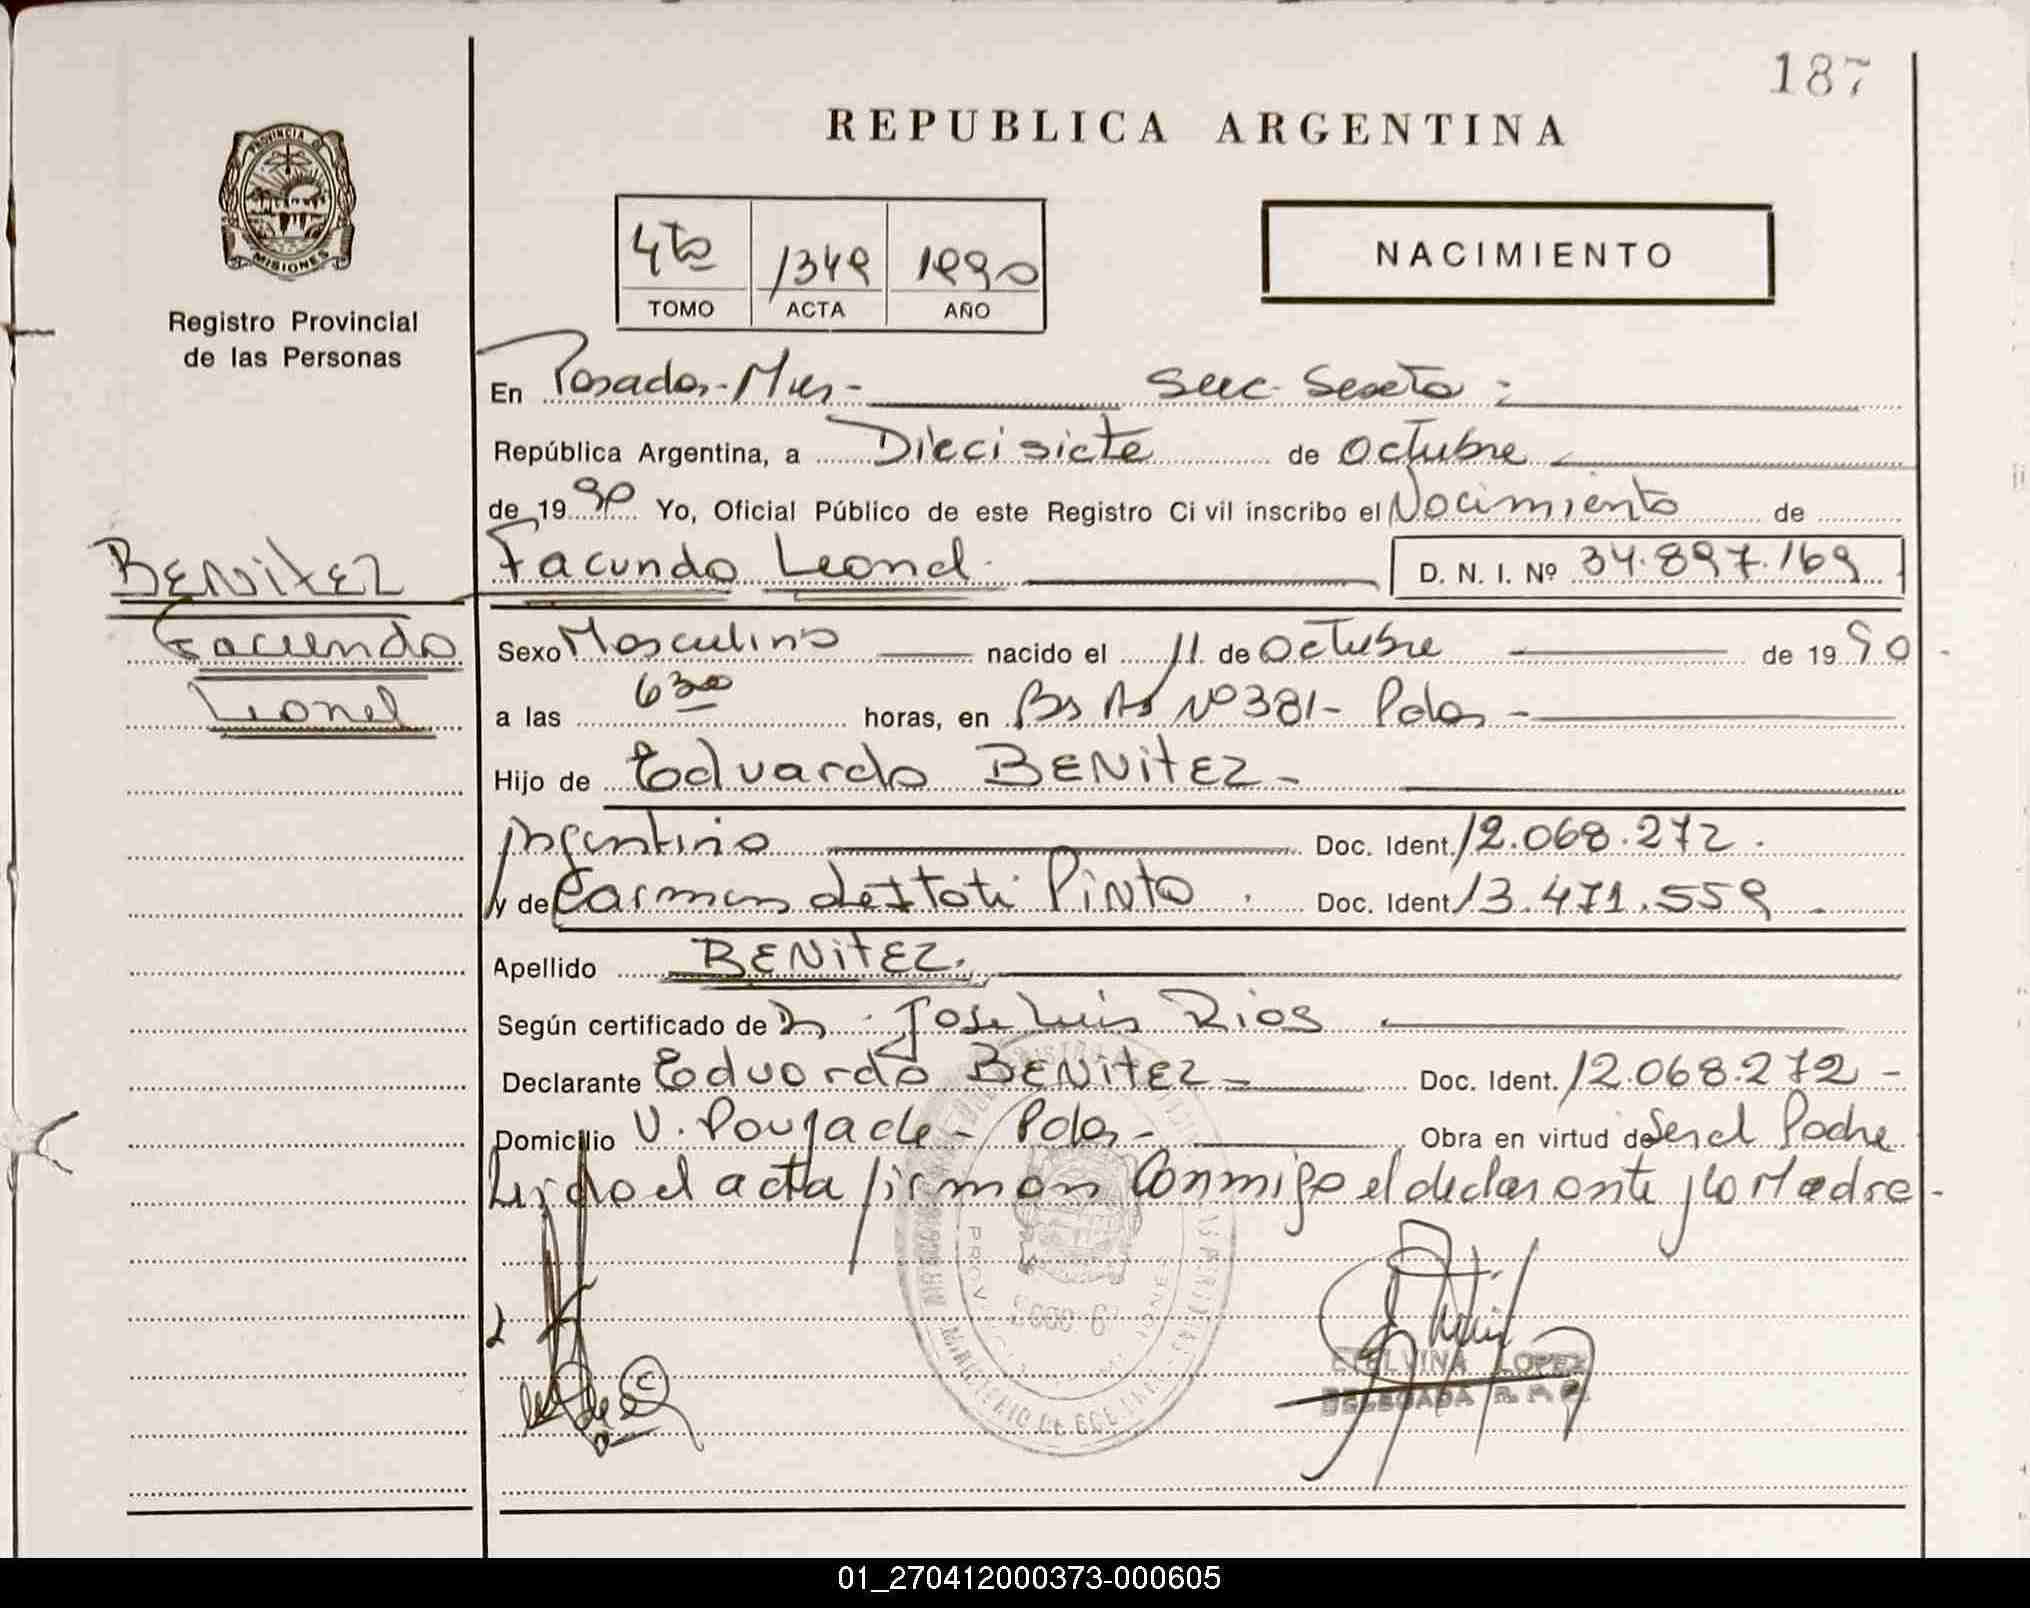 187
REPUBLICA ARGENTINA
PROVINCIA DE
MISIONES
Registro Provincial
de las Personas
4to 1349 1990
TOMO ACTA AÑO
NACIMIENTO
En Posadas - Mnes - Secc. Sexta
República Argentina, a Diecisiete de Octubre
de 1990 Yo, Oficial Público de este Registro Civil inscribo el Nacimiento de
BENITEZ
Facundo Leonel D. N. I. Nº 34.897.169
Facundo
Leonel
Sexo Masculino nacido el 11 de Octubre de 1990
a las 6 30 horas, en Bs As Nº 381 - Pdas -
Hijo de Eduardo BENITEZ -
Argentino Doc. Ident. 12.068.272.
y de Carmen Pinto Doc. Ident. 13.471.559
Apellido BENITEZ.
Según certificado de Dr. Jose Luis Rios
Declarante Eduardo BENITEZ - Doc. Ident. 12.068.272 -
Domicilio V. Poujade - Pdas - Obra en virtud de Ser el Padre
Leido el acta firman Conmigo el declarante y la Madre -
ETELVINA LOPEZ
DELEGADA R.
01_270412000373-000605